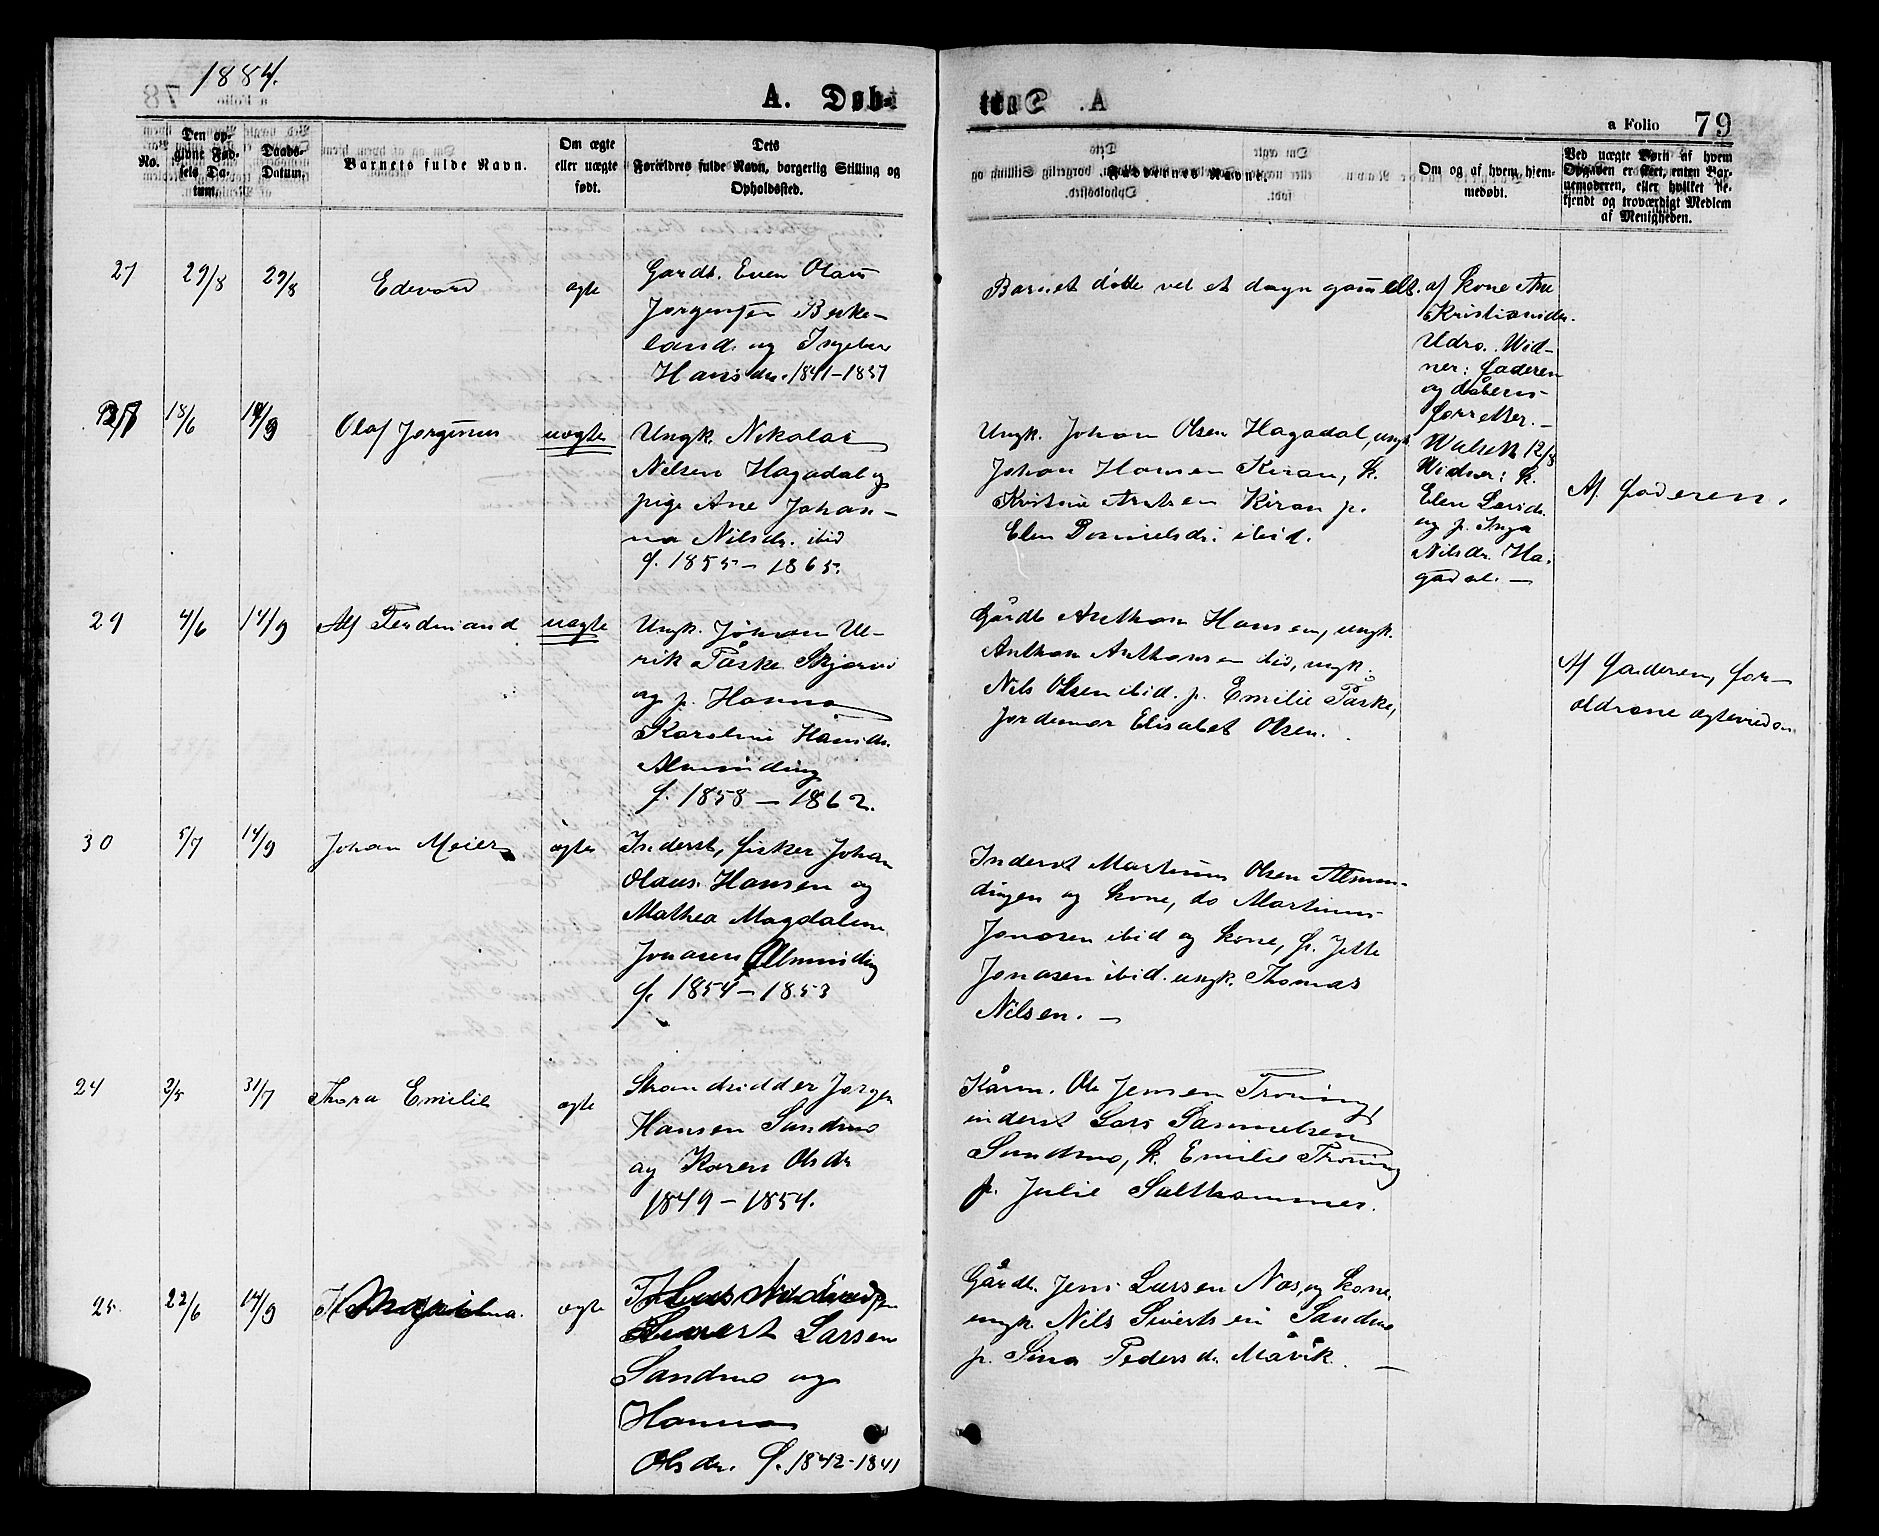 1884.
A. Døb-
a Folio 79
No.
Den op-
givne Fød-
sels Da-
tum.
Daabs-
Datum.
Barnets fulde Navn.
Om ægte
eller uægte
født.
Dets
Forældres fulde Navn, borgerlig Stilling og
Opholdssted.
Faddernes Navne.
Om og af hvem hjem-
medøbt.
Ved uægte Børn af hvem
Opgaven er skeet, enten Bar-
nemoderen, eller hvilket be-
kjendt og troværdigt Medlem
af Menigheden.
27 29/8 29/8 Edevard ægte
Gardb. Even Olaus
Jørgensen Berke-
land og Ingebor
Hansdr. 1841-1837
Barnet døde vel et døgn gammelt.
af Kone Ane
Kristiansdr.
Udro. Wid-
ner: faderen
og dåbens-
forretter.
18/6 14/9 Olaf Jørginus uægte
Ungk. Nikolai
Nilsen Hagadal og
pige Ane Johan-
na Nilsdr. ibid
f. 1855-1865.
Ungk. Johan Olsen Hagadal, ungk.
Johan Hansen Kiran, k.
Kiran p.
Elen Danielsdr. ibid.
12/8
Widner: k.
Elen
og p. Inga
Nilsdr. Ha-
gadal. -
Af faderen.
29 4/6 14/9 Alf Ferdinand uægte
Ungk. Johan Ul-
rik Påske Skjørvi
og p. Hanna
Karoline Hansdr.
Alminding
f. 1858 - 1862.
Gårdb Anthon Hansen, ungk.
Anthon Anthonsen ibid, ungk.
Nils Olsen ibid. p. Emilie Påske,
Jordemor Elisabet Olsen.
Af faderen, for-
ældrene ægteviede
30 5/7 14/9 Johan Meier ægte
Inderst, fisker Johan
Olaus Hansen og
Mathea Magdalene
Jonasen Allminding
f. 1854-1853
Inderst Martinus Olsen Almin-
dingen og kone, do Martinus
Jonasen ibid og kone, p. Jette
Jonasen ibid. ungk. Thomas
Nilsen. -
24 2/5 31/7 Thora Emilie ægte
Strandsidder Jørgen
Hansen Sandmo
og Karen Olsdr
1849-1854.
Kårm. Ole Jensen Troning,
inderst Lars Samuelsen
Sandmo, k. Emilie Troning
p. Julie Salthammer.
25. 22/6 14/9 ægte
Sivert Larsen
Sandmo og
Hanna
Olsdr. f. 1842-1841
Gårdb. Jens Larsen Næs, og kone,
ungk. Nils Sivertsen Sandmo
p. Sina Pedersdr. Måvik. -